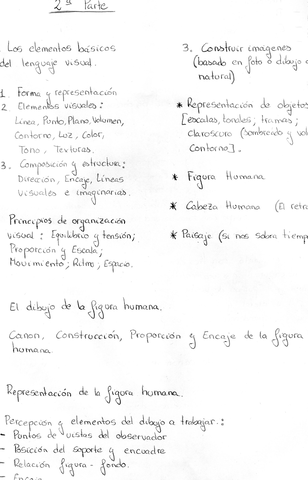 2ª Parte
Los elementos básicos
del lenguaje visual.
1. Forma y representación
2 Elementos visuales:
Línea, Punto, Plano, Volumen,
Contorno, Luz, Color,
Tono, Texturas.
3. Composición y estructura:
Dirección, Encaje, Líneas
visuales e imaginarias.
Principios de organización
visual: Equilibrio y tensión;
Proporción y Escala;
Movimiento; Ritmo; Espacio.
3. Construir imágenes
(basado en foto o dibujo
natural)
* Representación de objetos
[escalas, tonales; tramas;
claroscuro (sombreado y
Contorno].
* Figura Humana
* Cabeza Humana (El
* Paisaje (Si nos sobra
El dibujo de la figura humana.
Canon, Construcción, Proporción y Encaje de la figura
humana.
Representación de la figura humana.
Percepción y elementos del dibujo a trabajar.:
- Puntos de vistas del observador
- Posición del soporte y encuadre
- Relación figura - fondo.
- Encaje